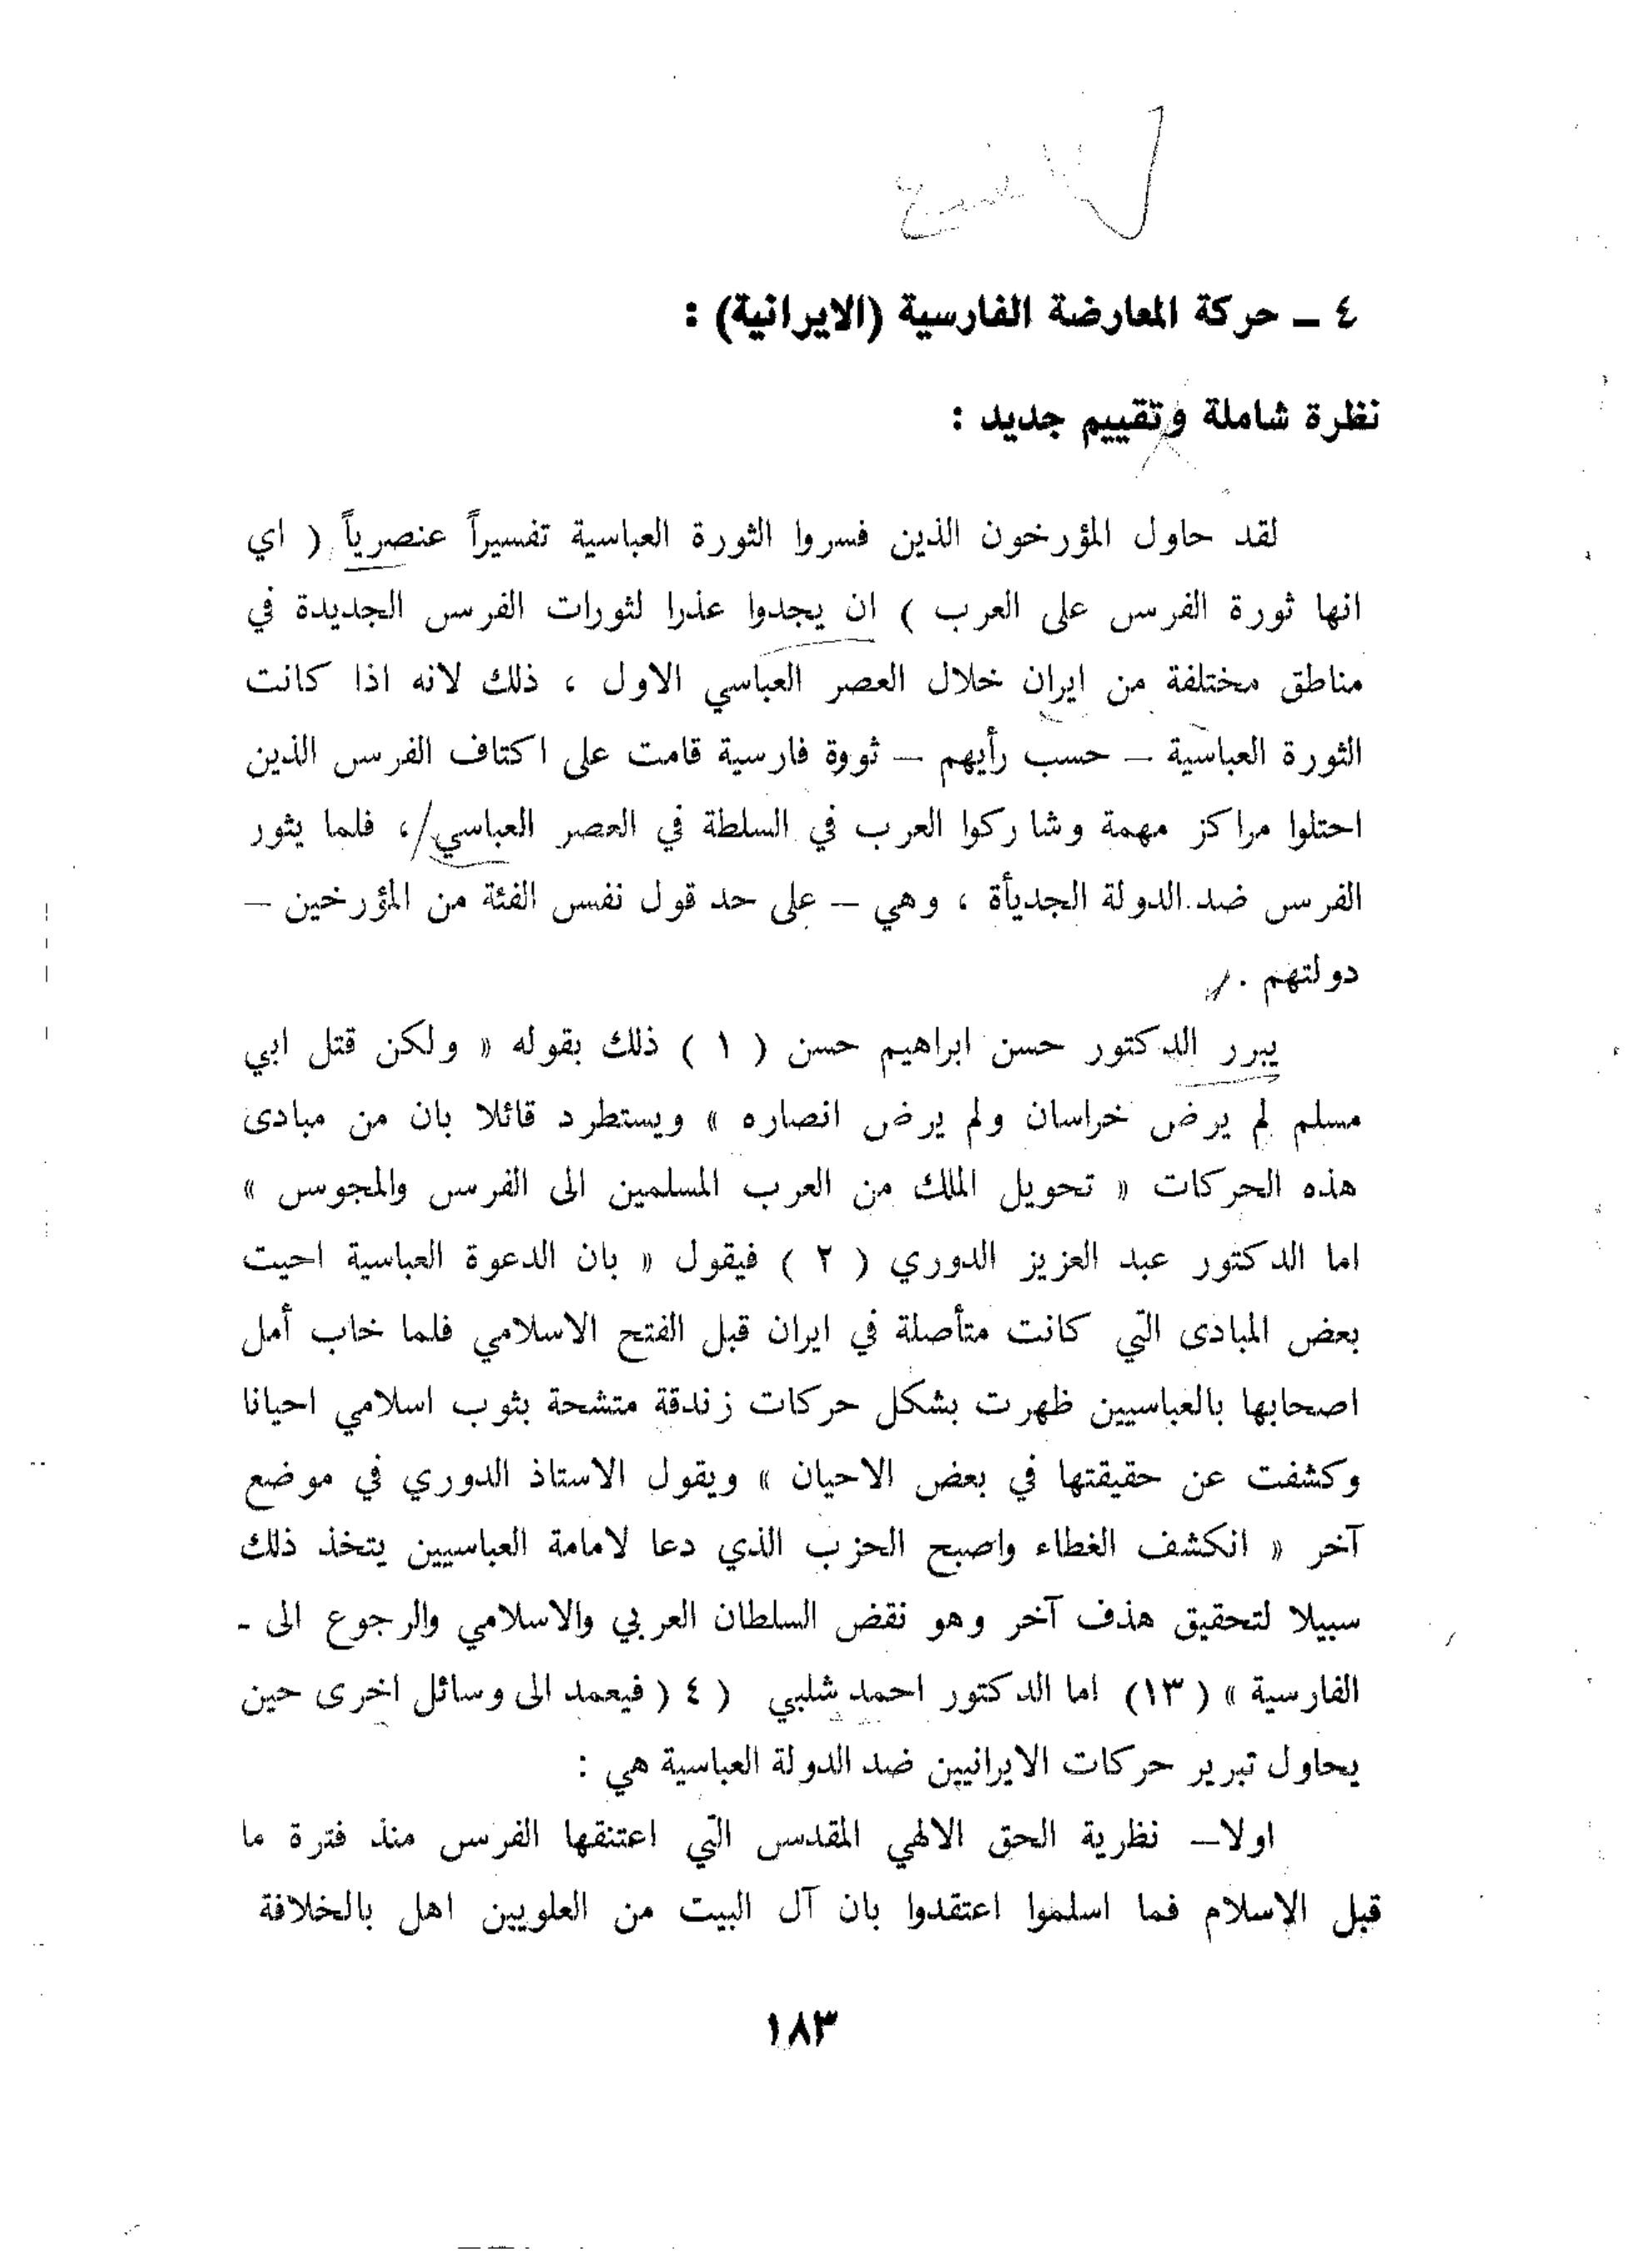 ٤ ــ حركة المعارضة الفارسية (الايرانية) :
نظرة شاملة وتقييم جديد :
لقد حاول المؤرخون الذين فسروا الثورة العباسية تفسيراً عنصرياً ( اي
انها ثورة الفرس على العرب ) ان يجدوا عذرا لثورات الفرس الجديدة في
مناطق مختلفة من ايران خلال العصر العباسي الاول ، ذلك لانه اذا كانت
الثورة العباسية ــ حسب رأيهم ــ ثووة فارسية قامت على اكتاف الفرس الذين
احتلوا مراكز مهمة وشاركوا العرب في السلطة في العصر العباسي ، فلما يثور
الفرس ضد الدولة الجديأة ، وهي ــ على حد قول نفس الفئة من المؤرخين ــ
دولتهم .
يبرر الدكتور حسن ابراهيم حسن ( ١ ) ذلك بقوله « ولكن قتل ابي
مسلم لم يرض خراسان ولم يرض انصاره » ويستطرد قائلا بان من مبادى
هذه الحركات « تحويل الملك من العرب المسلمين الى الفرس والمجوس »
اما الدكتور عبد العزيز الدوري ( ٢ ) فيقول « بان الدعوة العباسية احيت
بعض المبادى التي كانت متأصلة في ايران قبل الفتح الاسلامي فلما خاب أمل
اصحابها بالعباسيين ظهرت بشكل حركات زندقة متشحة بثوب اسلامي احيانا
وكشفت عن حقيقتها في بعض الاحيان » ويقول الاستاذ الدوري في موضع
آخر « انكشف الغطاء واصبح الحزب الذي دعا لامامة العباسيين يتخذ ذلك
سبيلا لتحقيق هذف آخر وهو نقض السلطان العربي والاسلامي والرجوع الى ـ
الفارسية » (١٣) اما الدكتور احمد شلبي ( ٤ ( فيعمد الى وسائل اخرى حين
يحاول تبرير حركات الايرانيين ضد الدولة العباسية هي :
اولا ــ نظرية الحق الالهي المقدس التي اعتنقها الفرس منذ فترة ما
قبل الاسلام فما اسلموا اعتقدوا بان آل البيت من العلويين اهل بالخلافة
١٨٣